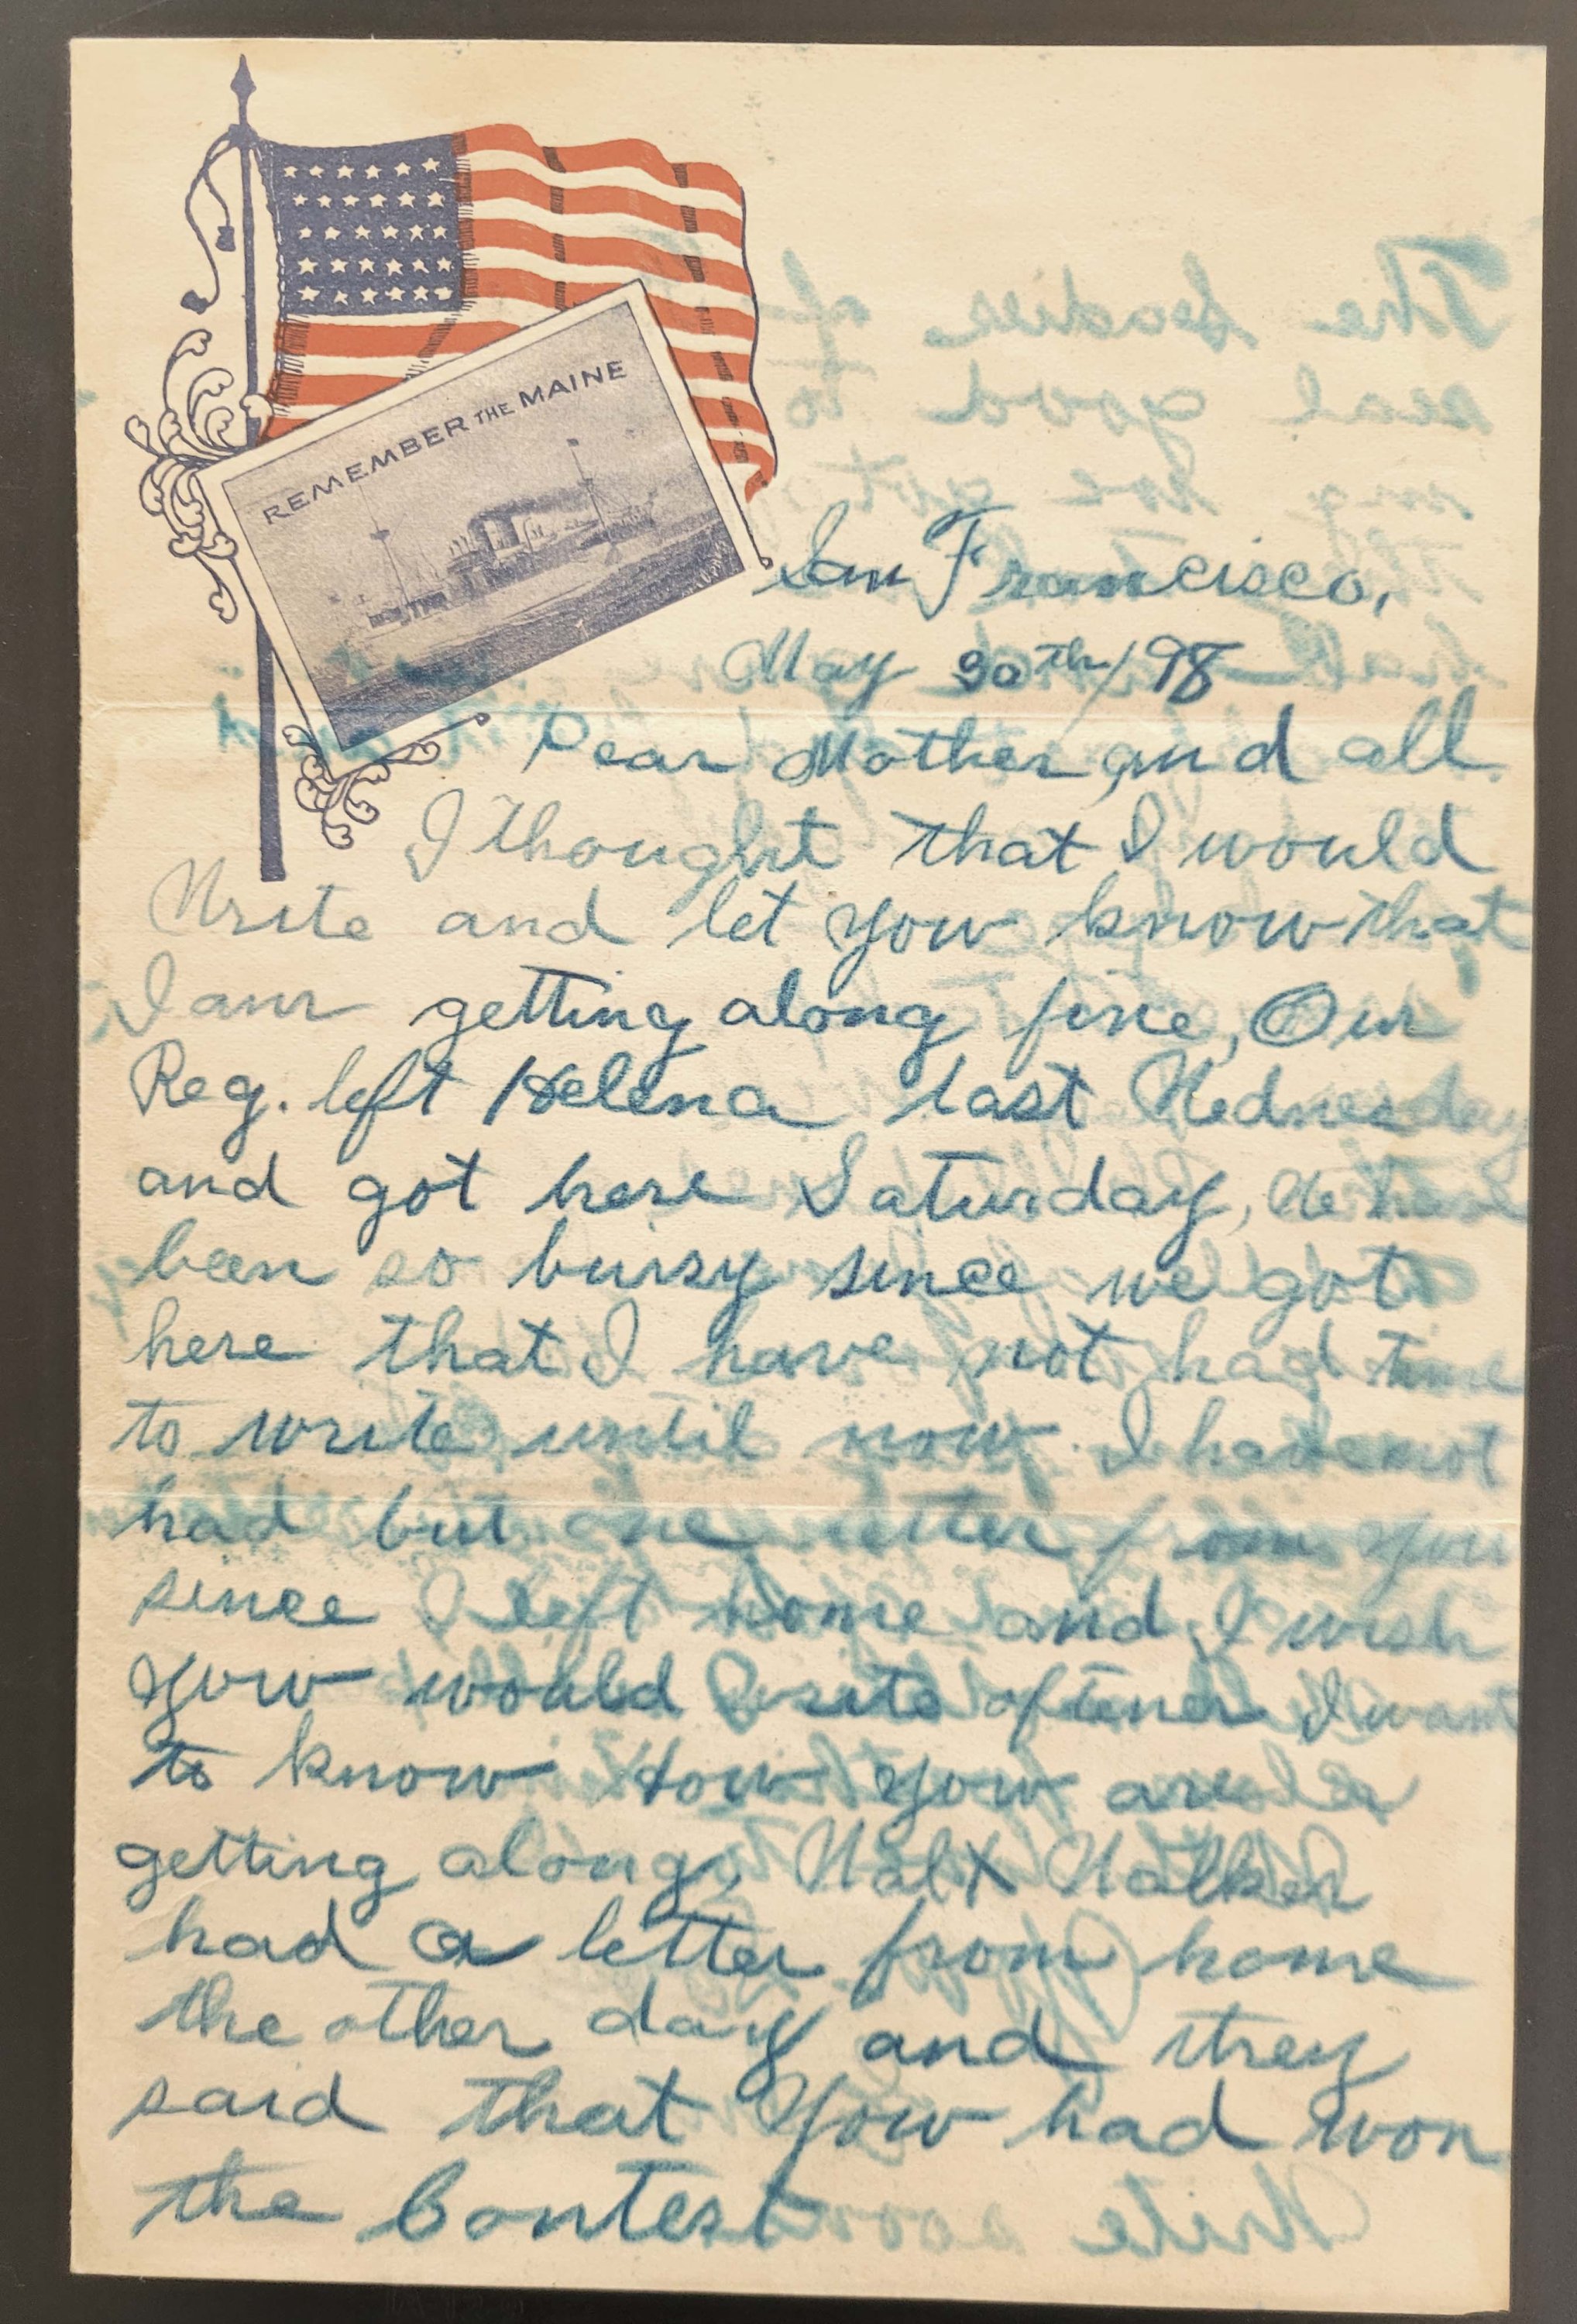 REMEMBER THE MAINE
San Francisco,
May 30th/98
Dear Mother and all
I thought that I would
Write and let you know that
I am getting along fine, Our
Reg. left Helena last Wednesday
and got here Saturday, We have
been so buisy since we got
here that I have not had time
to write until now. I have not
had but one letter from you
since I left home and I wish
you would write oftener I want
to know how you are
getting along, Walt Walker
had a letter from home
the other day and they
said that you had won
the Contest